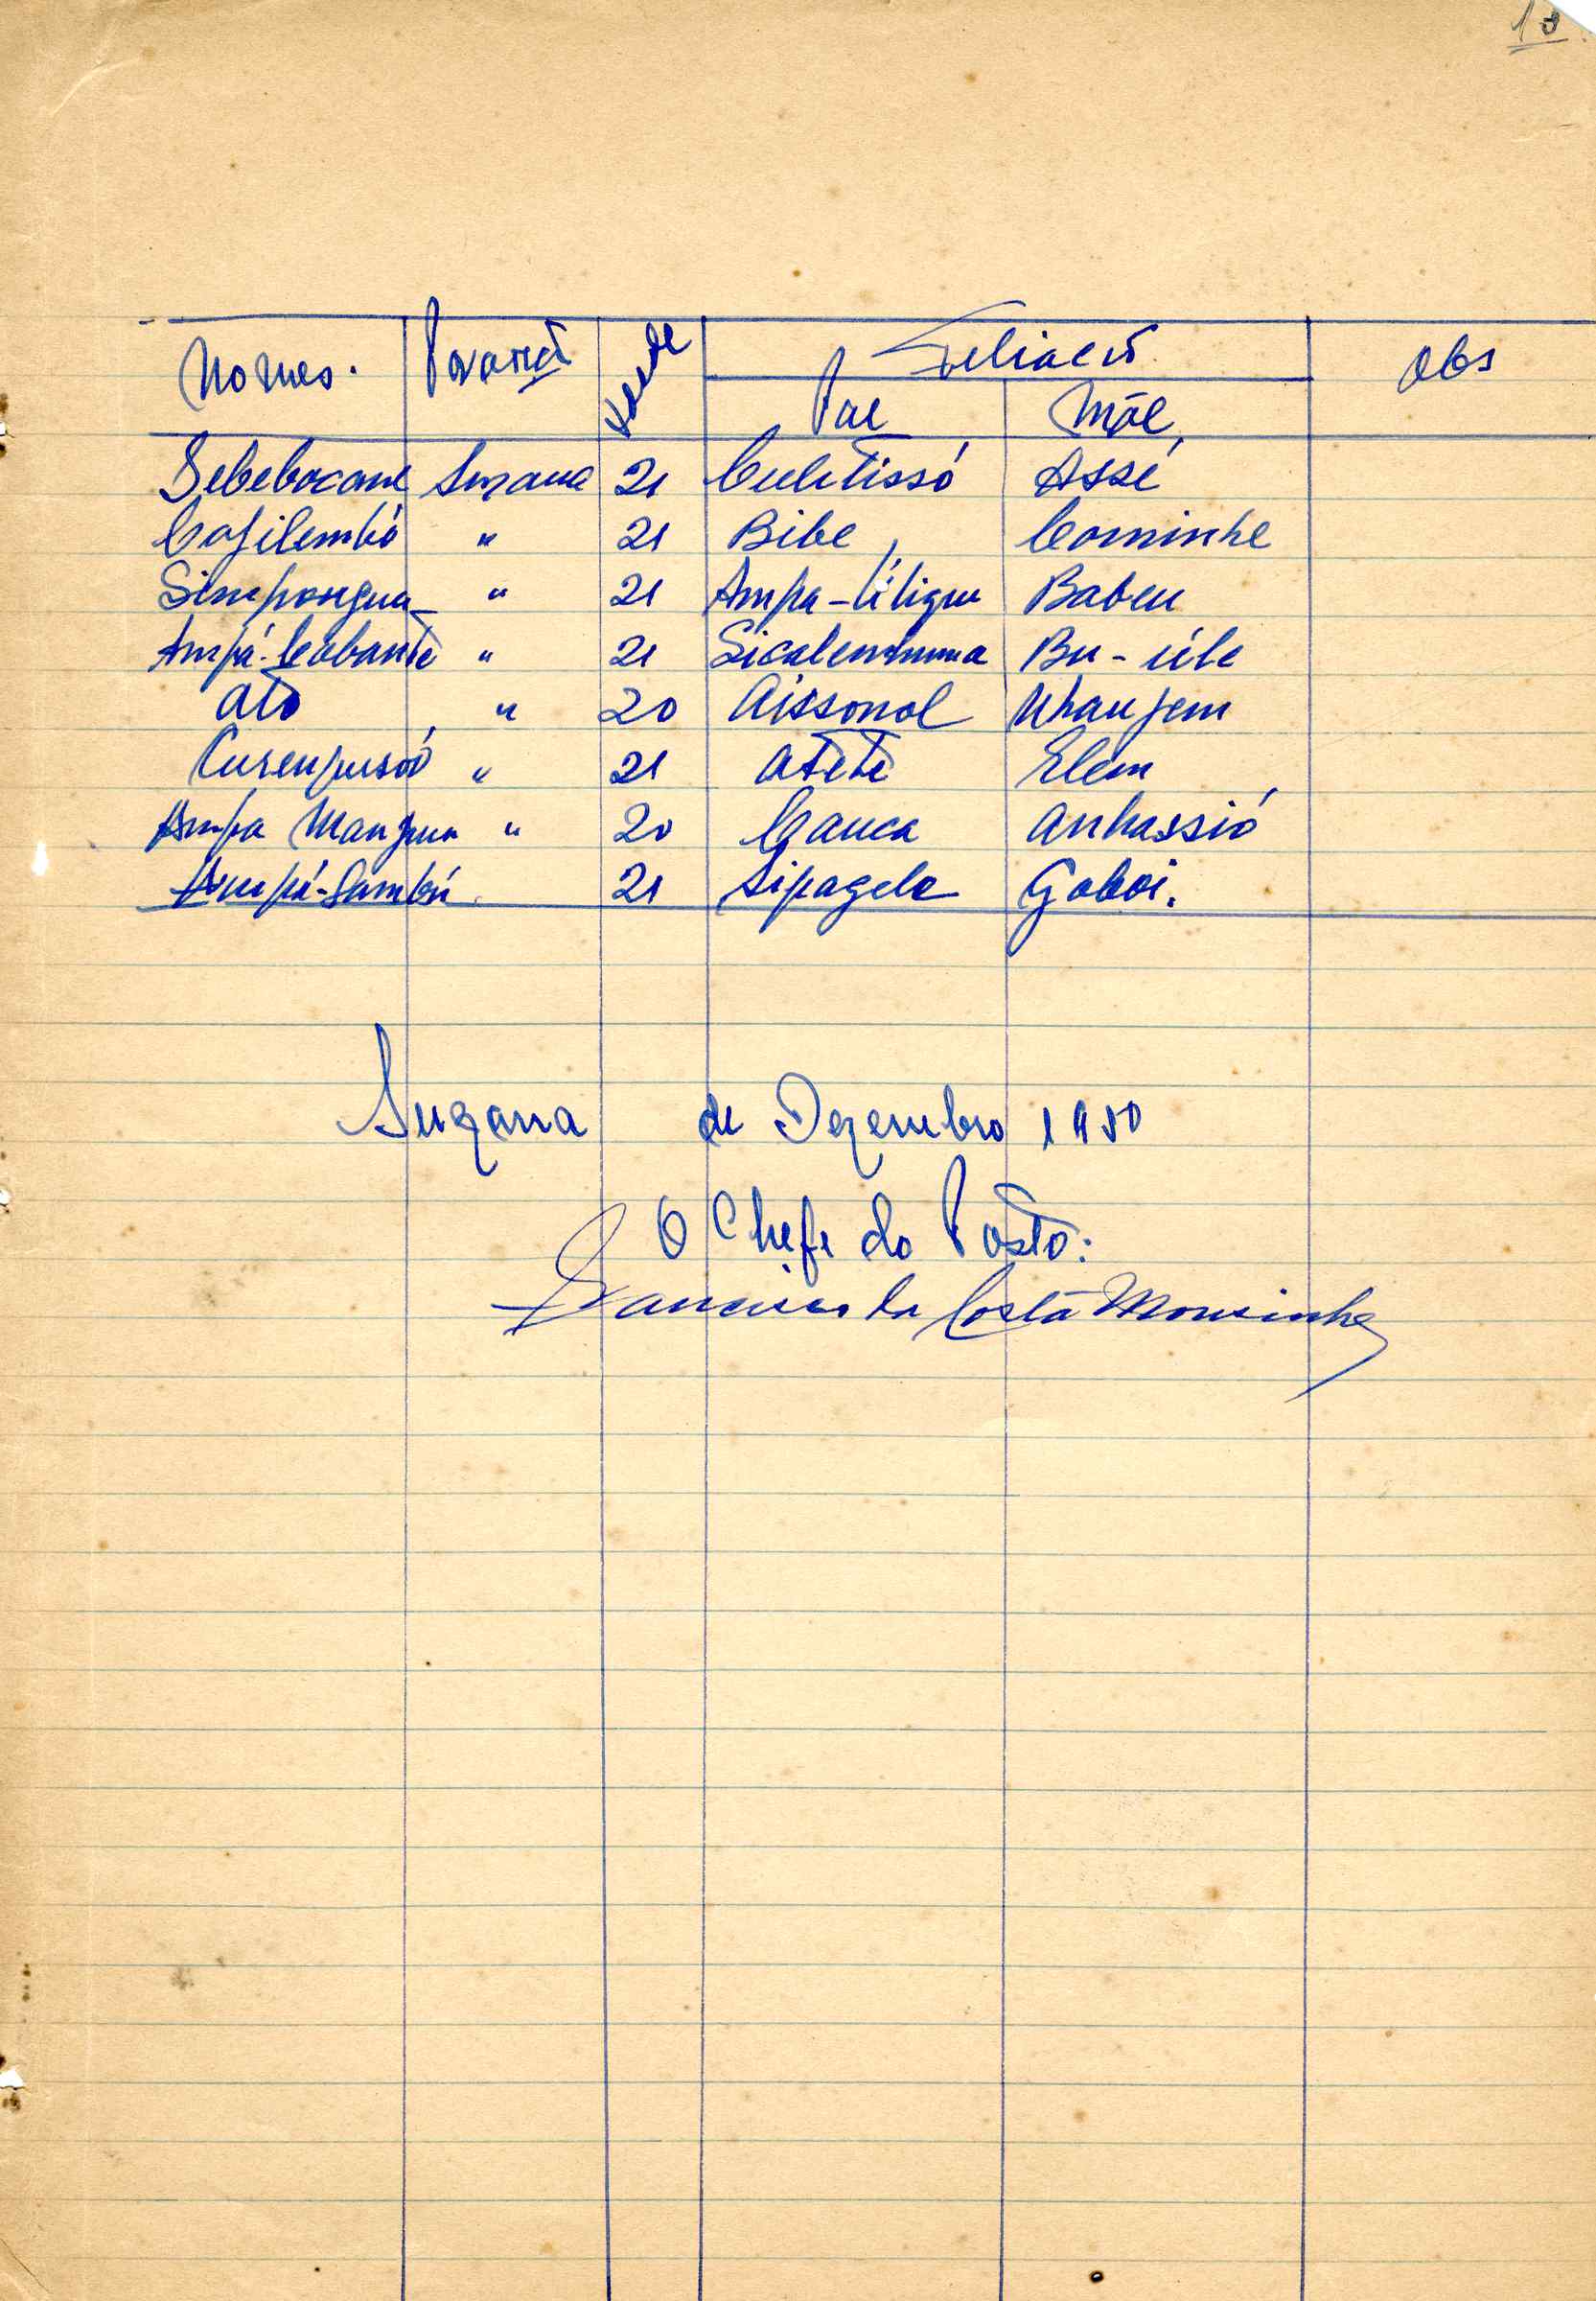 10
Nomes. Povoação Idade Filiação Obs
Pae Mãe
Sebebocane Suzana 21 Culitissó Assé
Cafilembó " 21 Bibe Cominhe
Simpongua " 21 Ampa-Liligue Babeu
Ampá-Cobante " 21 Bu-úle
Ató " 20 Aissonol Nhaujem
" 21 Atete Elem
Ampa " 20 Cauca Anhassió
Ampá-Sambú 21 Sipagele Goboi.
Suzana de Dezembro 1950
O Chefe do Posto:
Francisco da Costa Mousinho